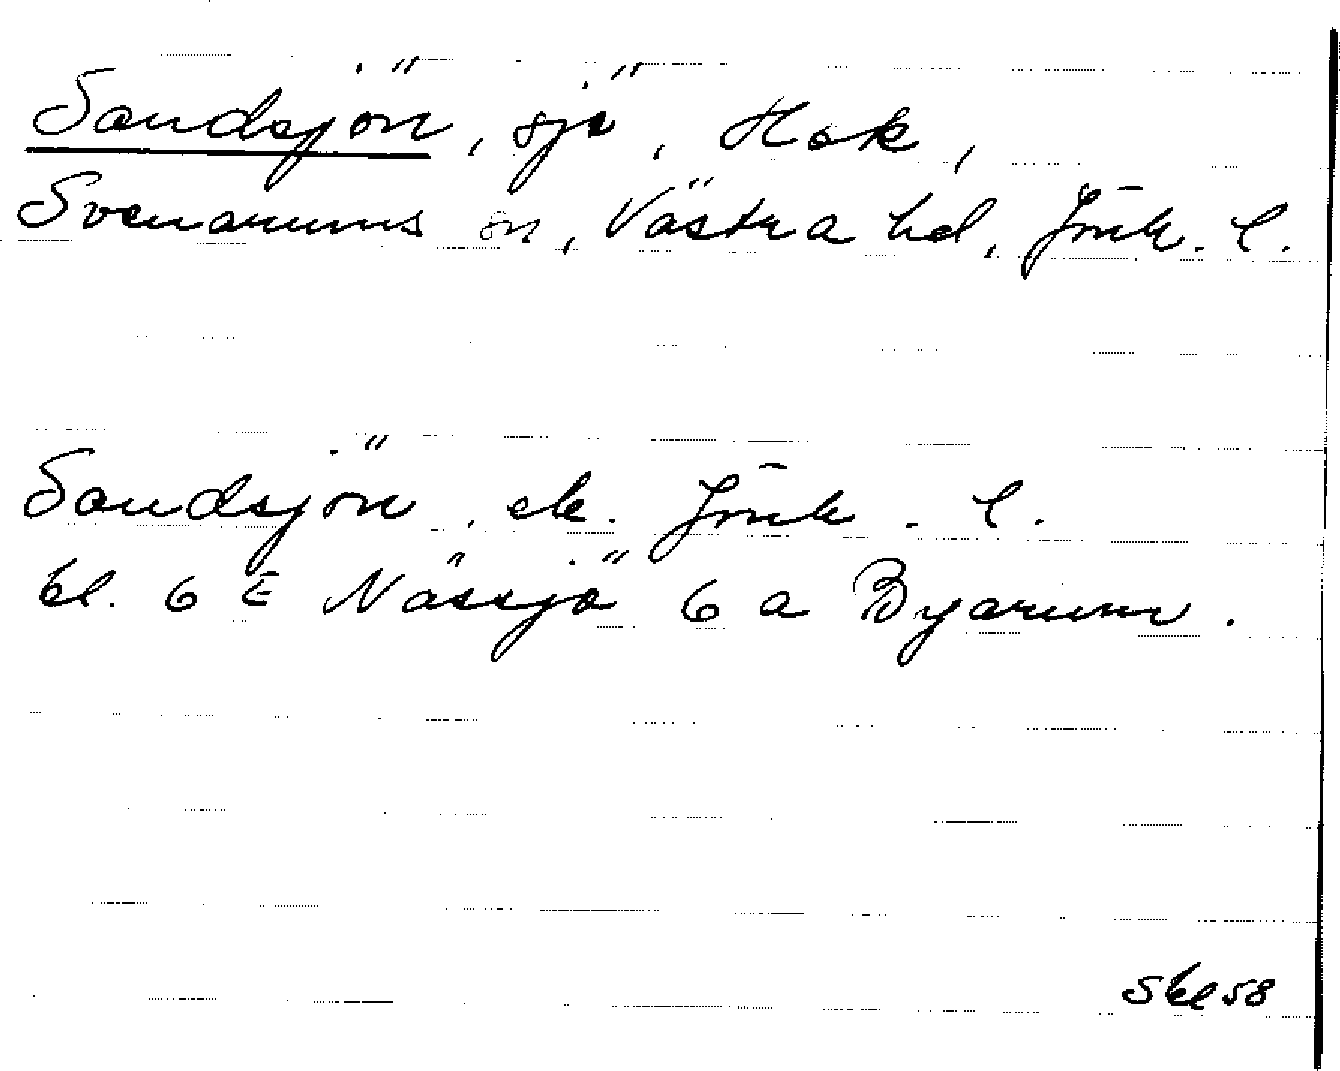 Sandsjön, sjö, Hok,
Svenarums sn, Västra hd, Jönk. l.
Sandsjön, ek. Jönk. l.
bl. 6 E Nässjö 6 a Byarum.
Skl 58